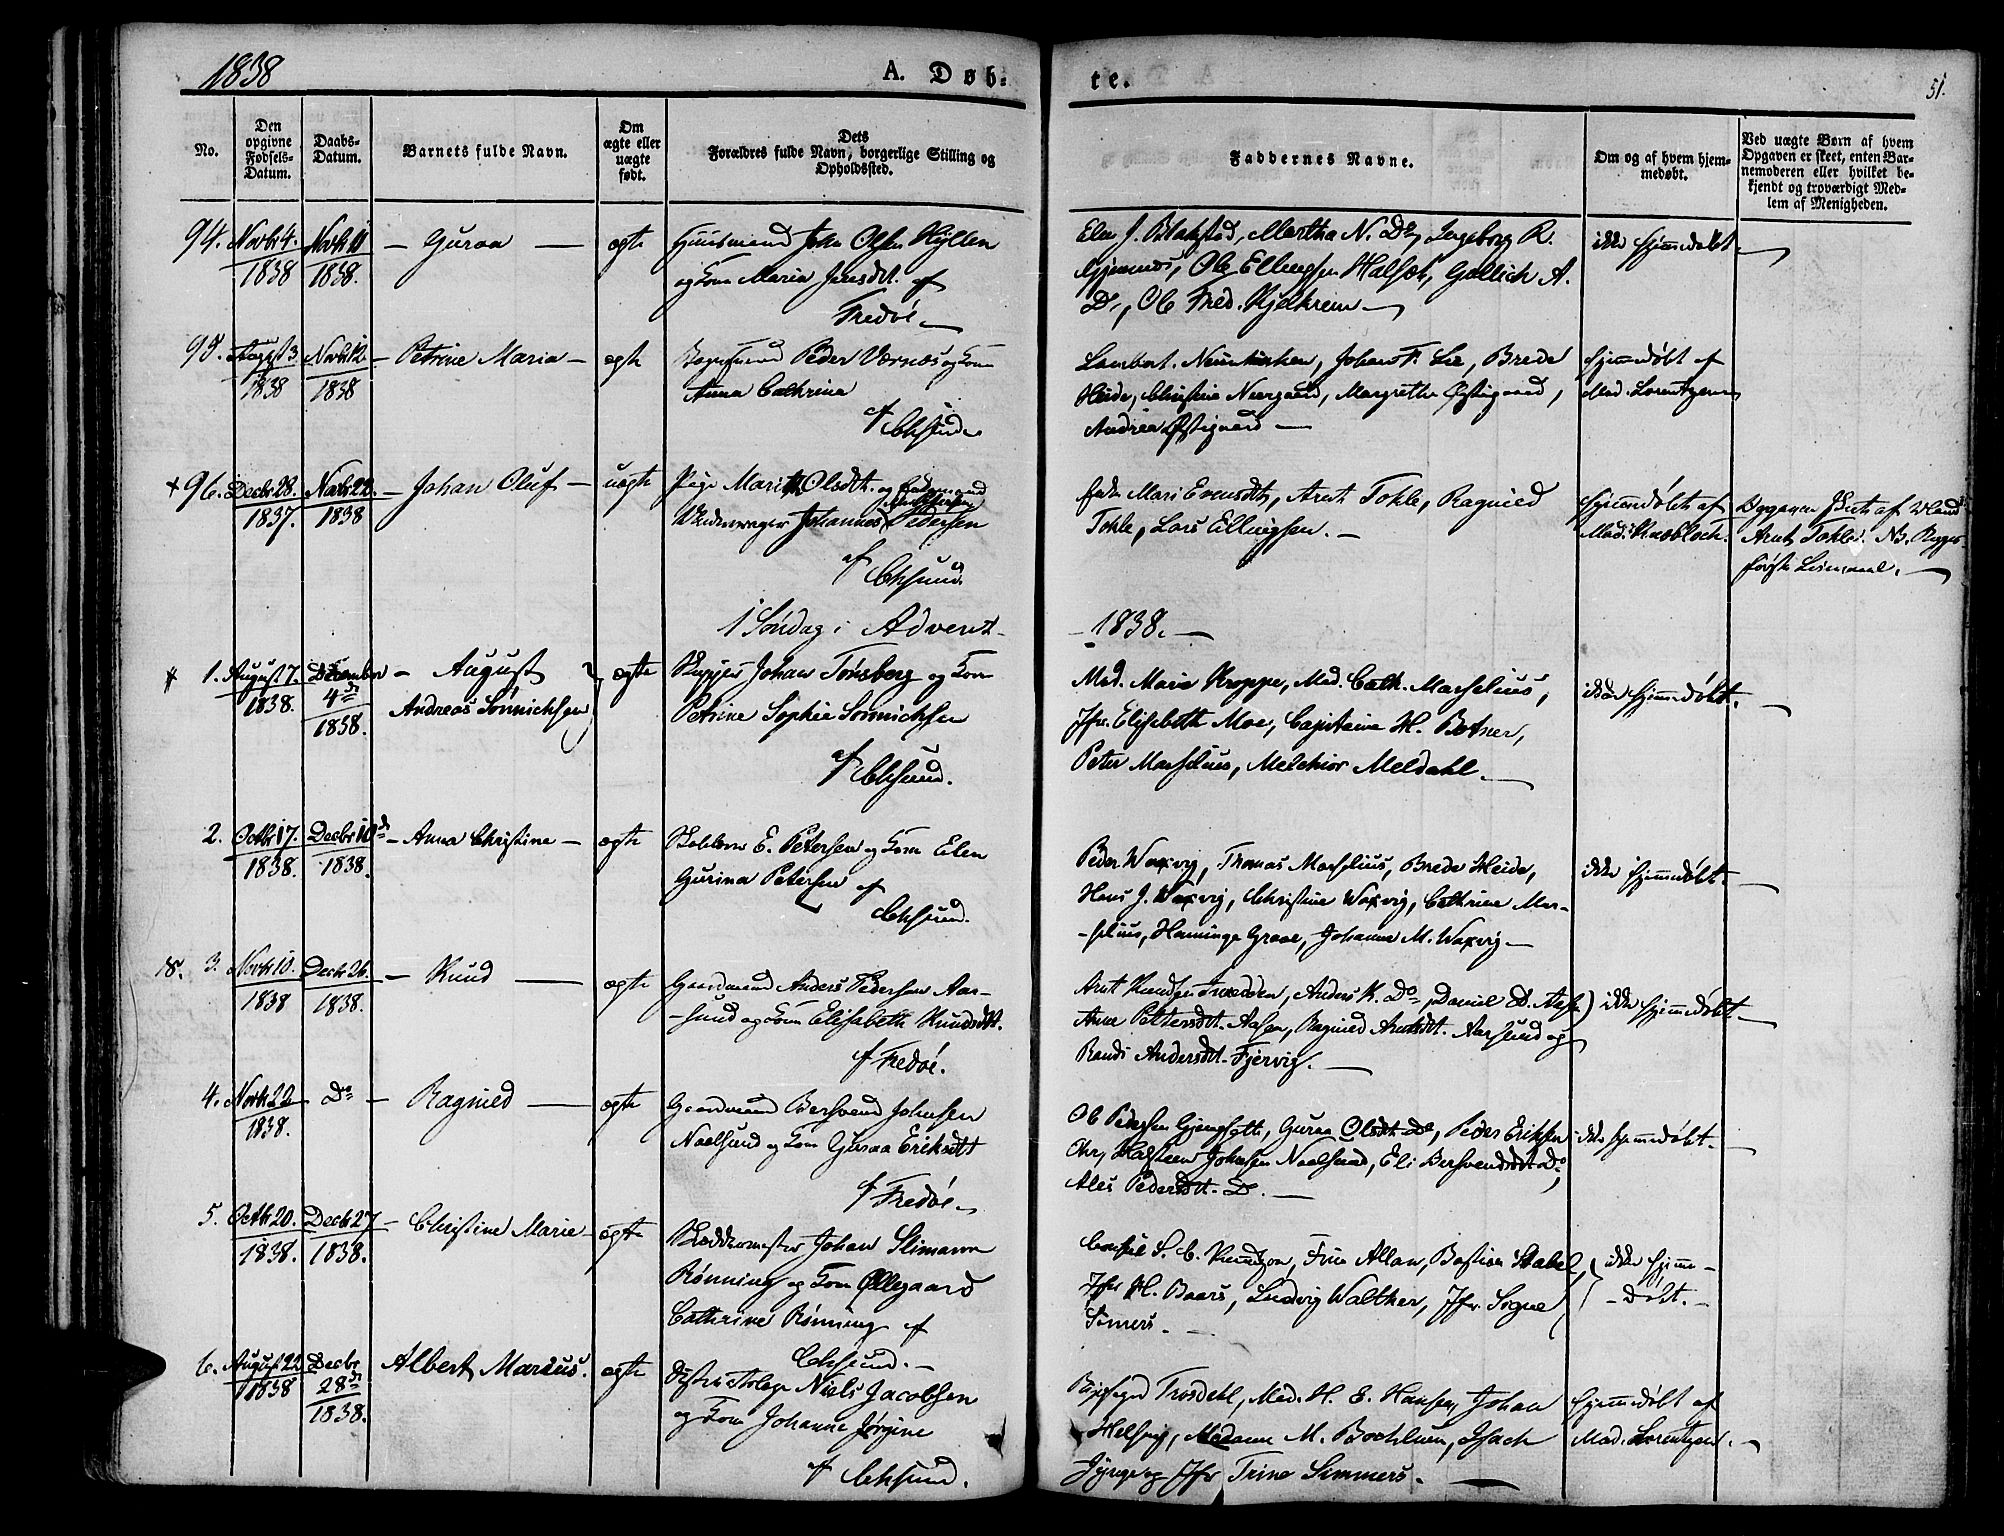 1838
A. Døb-
te.
51.
No.
Den
opgivne
Fødsels-
Datum.
Daabs-
Datum.
Barnets fulde Navn.
Om
ægte eller
uægte
født.
Dets
Forældres fulde Navn, borgerlige Stilling og
Opholdssted.
Faddernes Navne.
Om og af hvem hjem-
medøbt.
Ved uægte Børn af hvem
Opgaven er skeet, enten Bar-
nemoderen eller hvilket be-
kjendt og troværdigt Med-
lem af Menigheden.
94. Novbr 4. 1838 Novbr 11 1838. – Guraa – ægte
Huusmand John Olsen Hyllen
og Kone Maria Jensdt. af
Fredøe
Elen J. Blakstad, Martha N. Do, Ingeborg R.
Gjemnes, Ole Ellingsen Halsæt, Gullich A.
Do, Ole Fred. Kjelkrem
ikke hjemmedøbt
95. August 3. 1838 Novbr 12. 1838 – Petrine Maria – ægte
Peder Værnæs og Kone
Anna Cathrina
af Chsund
Lambert. Johan F. Lie, Brede
Heide, Christine Neergaard, Margrethe Østigaard,
Andrea Østigaard
hjemmedøbt af
Mad. Lorentzen
+ 96. Decbr 28. 1837. Novbr 22. 1838 – Johan Oluf – uægte
Pige Marith Olsdt. og
Johannes Pedersen
af Chsund.
Mari Evensdt, Arnt Tokle, Ragnild
Tokle, Lars Ellingsen.
hjemmedøbt af
Mad. Knobloch.
af
Arnt Tokle. NB.
første Leiermaal.
1 Søndag i Advent
– 1838. –
1. August 7. 1838. December 4de 1838. – August
Andreas Sønnichsen
ægte
Skipper Johan Tønsberg og Kone
Petrine Sophie Sønnichsen
af Chsund.
Mad. Marie Kroppe, Mad. Cath. Marselius,
Jfr. Elisabeth Moe, Capitaine H. Botner,
Peter Marselius, Melchior Meldahl.
ikke hjemmedøbt.
2. Octbr 17. 1838. Decbr 10de 1838. – Anna Christine – ægte
E. Petersen og Kone Elen
Gurina Petersen af
Chsund.
Peder Waxvig, Thomas Marselius, Brede Heide,
Hans J. Waxvig, Christine Waxvig, Cathrine Mar-
-selius, Henninge Graae, Johanne M. Waxvig
ikke hjemmedøbt.
18. 3. Novbr 10. 1838 Decbr 26. 1838. – Knud – ægte
Gaardmand Anders Pedersen Aar-
-sund og Kone Elisabeth Knudsdt.
af Fredøe.
Arnt Knudsen Anders K. Do, Daniel D.
Anne Pettersdt. Aasen, Ragnild Arntsdt. Aarsund og
Randi Andersdt. Fjervig.
ikke hjemmedøbt.
4. Novbr 22 1838. Do – Ragnild – ægte
Gaardmand Bersvend Johnsen
Naalsund og Kone Guraa Eriksdt
af Fredøe
Ole Pedersen Guraa Olsdt. Do, Peder Eriksen
Halsteen Johnsen Naalsund, Eli Bersvendsdt. Do,
Ales Pedersdt. Do.
ikke hjemmedøbt.
5. Octbr 20. 1838. Decbr 27 1838. – Christine Marie – ægte
Skræddermester Johan Slimann
Rønning og Kone Øllegaard
Cathrine Rønning af
Chsund.
Consul S. C. Knudtzon, Frue Allan, Bastian Stabel,
Jfr H. Baars, Ludvig Walther, Jfr. Sogne
Simers.
ikke hjemme-
-døbt.
6. August 22 1838 Decbr 28de 1838. Albert Marius. ægte
Districtslæge Niels Jacobsen
og Kone Johanne Jørgine
af Chsund.
Trosdahl, Mad. H. E. Hansen, Johan
Madame M. Isach
Jürgens og Jfr Trine Simmers.
hjemmedøbt af
Mad. Lorentzen.